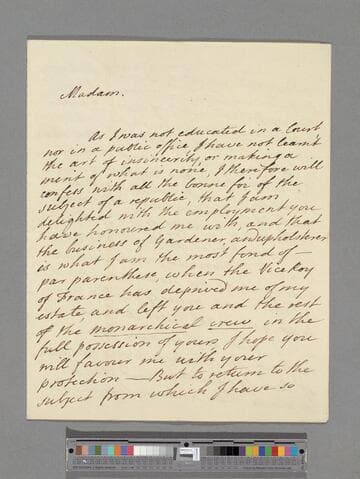 Madam.
As I was not educated in a Court
nor in a public office I have not learnt
the art of insincerity, or making a
merit of what is none, I therefore will
confess with all the bonne foi of the
subject of a republic, that I am
delighted with the employment you
have honoured me with, and that
the business of Gardener, and upholsterer
is what I am the most fond of —
par parenthese, when the Vice Roy
of France has deprived me of my
estate and left you and the rest
of the monarchical crew, in the
full possession of yours I hope you
will favour me with your
protection — But to return to the
subject from which I have so